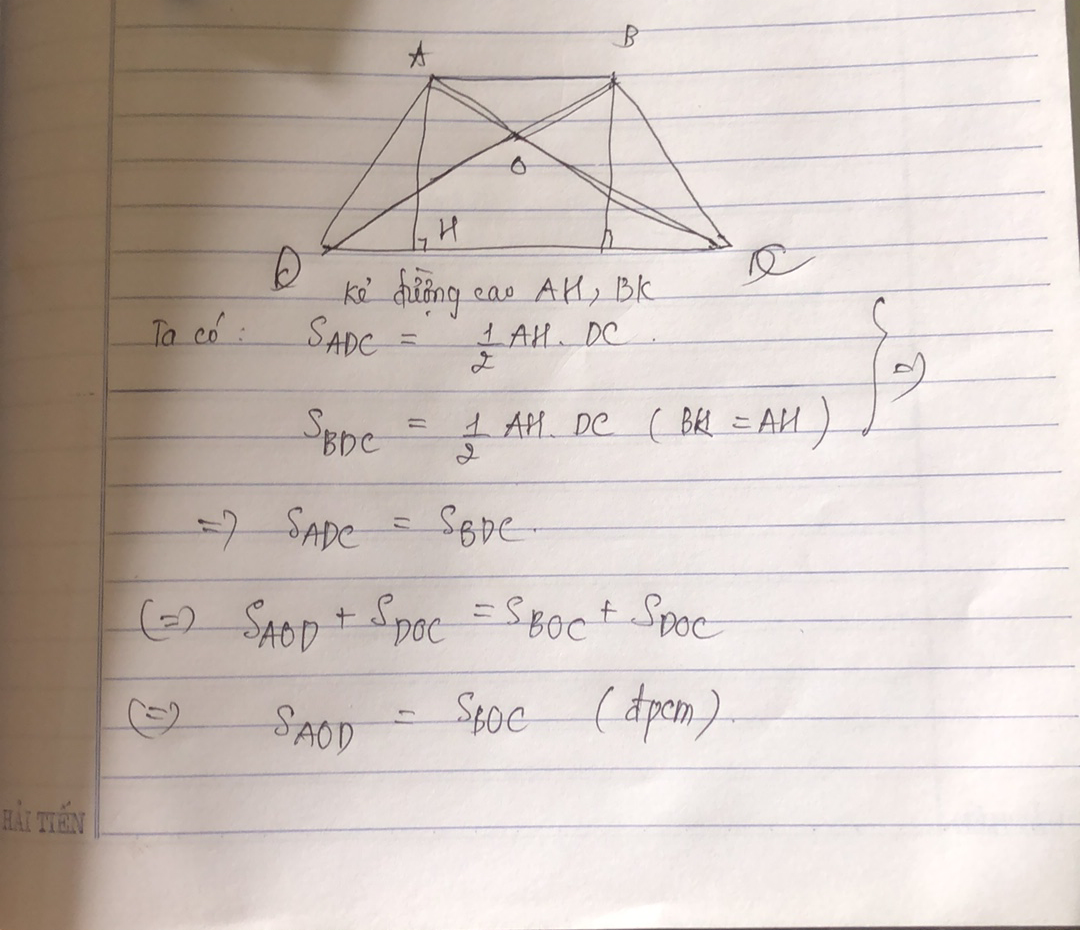 A B
O
H
D C
kẻ đường cao AH, BK
Ta có: S_ADC = 1/2 AH. DC.
S_BDC = 1/2 AH. DC (BK = AH) } =>
=> S_ADC = S_BDC.
(=) S_AOD + S_DOC = S_BOC + S_DOC
(=) S_AOD = S_BOC (đpcm).
HẢI TIẾN